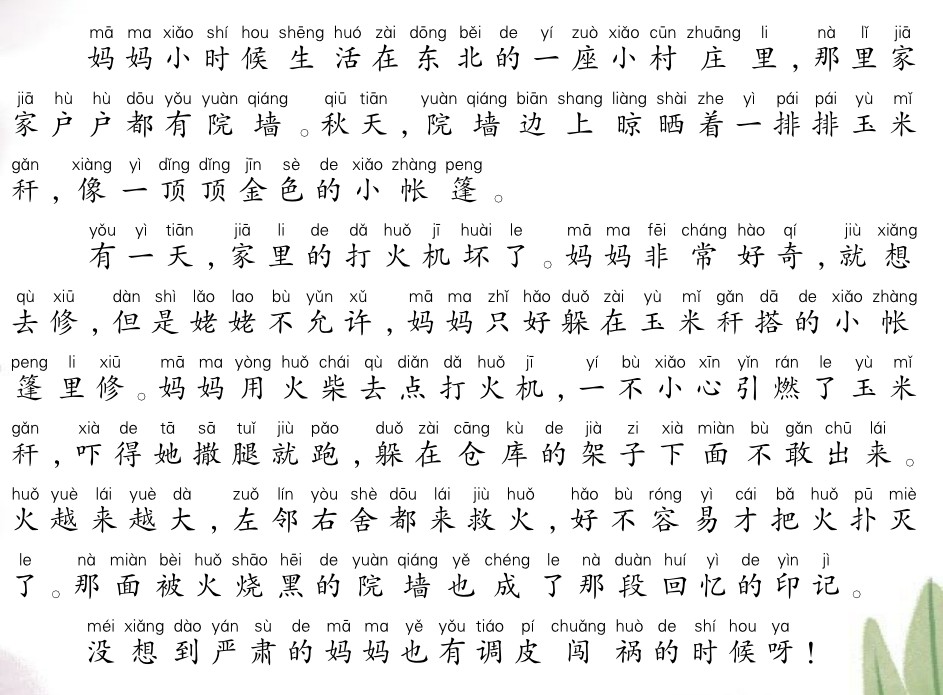 mā ma xiǎo shí hou shēng huó zài dōng běi de yí zuò xiǎo cūn zhuāng li nà lǐ jiā
妈妈小时候生活在东北的一座小村庄里,那里家
jiā hù hù dōu yǒu yuàn qiáng qiū tiān yuàn qiáng biān shang liàng shài zhe yì pái pái yù mǐ
家户户都有院墙。秋天,院墙边上晾晒着一排排玉米
gǎn xiàng yì dǐng dǐng jīn sè de xiǎo zhàng peng
秆,像一顶顶金色的小帐篷。
yǒu yì tiān jiā li de dǎ huǒ jī huài le mā ma fēi cháng hào qí jiù xiǎng
有一天,家里的打火机坏了。妈妈非常好奇,就想
qù xiū dàn shì lǎo lao bù yǔn xǔ mā ma zhǐ hǎo duǒ zài yù mǐ gǎn dā de xiǎo zhàng
去修,但是姥姥不允许,妈妈只好躲在玉米秆搭的小帐
peng li xiū mā ma yòng huǒ chái qù diǎn dǎ huǒ jī yí bù xiǎo xīn yǐn rán le yù mǐ
篷里修。妈妈用火柴去点打火机,一不小心引燃了玉米
gǎn xià de tā sā tuǐ jiù pǎo duǒ zài cāng kù de jià zi xià miàn bù gǎn chū lái
秆,吓得她撒腿就跑,躲在仓库的架子下面不敢出来。
huǒ yuè lái yuè dà zuǒ lín yòu shè dōu lái jiù huǒ hǎo bù róng yì cái bǎ huǒ pū miè
火越来越大,左邻右舍都来救火,好不容易才把火扑灭
le nà miàn bèi huǒ shāo hēi de yuàn qiáng yě chéng le nà duàn huí yì de yìn jì
了。那面被火烧黑的院墙也成了那段回忆的印记。
méi xiǎng dào yán sù de mā ma yě yǒu tiáo pí chuǎng huò de shí hou ya
没想到严肃的妈妈也有调皮闯祸的时候呀!